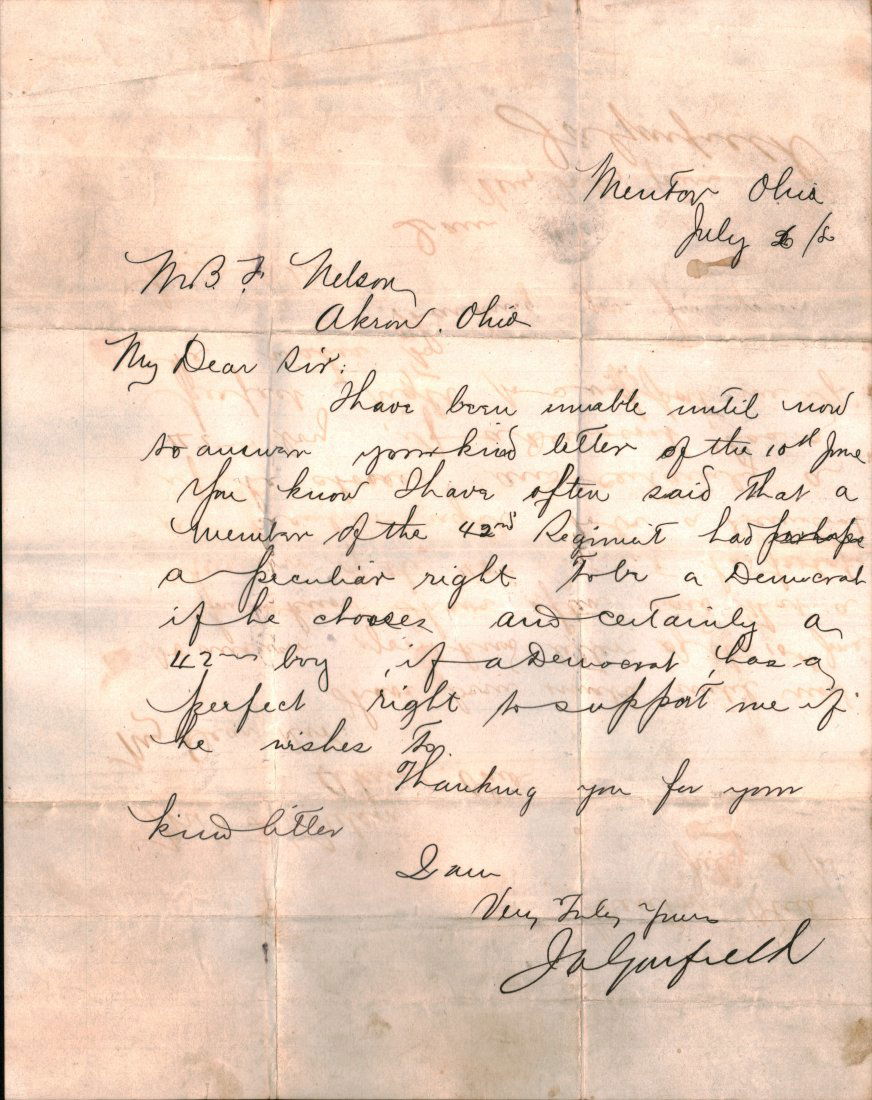 Mentor Ohio
July
Mr B. F. Nelson
Akron. Ohio
My Dear Sir:
I have been unable until now
to answer your kind letter of the 10th June
You know I have often said that a
member of the 42nd Regiment had perhaps
a peculiar right to be a Democrat
if he chooses and certainly a
42nd boy, if a Democrat, has a
perfect right to support me if
he wishes to.
Thanking you for your
kind letter
I am
Very Truly Yours
J A Garfield